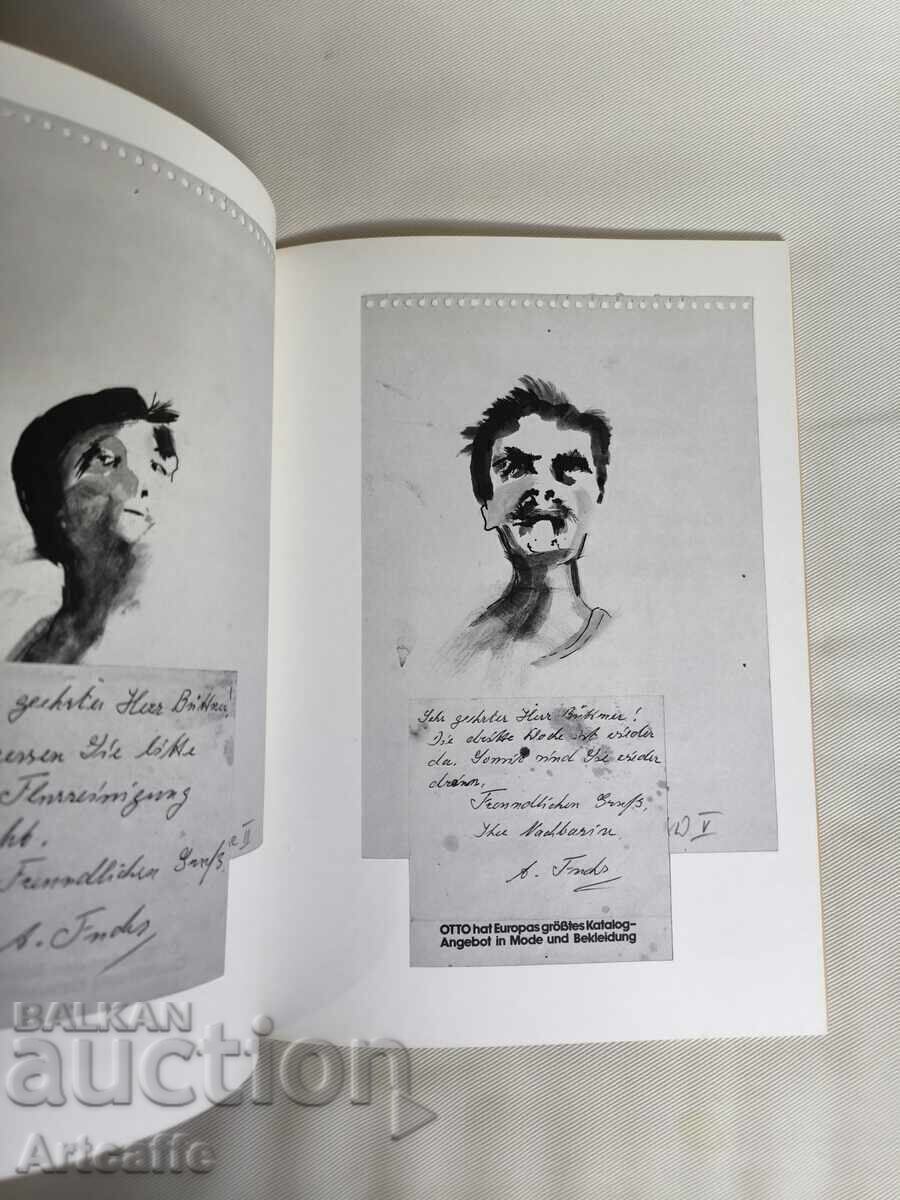 geehrter Herr Büttner!
essen Sie bitte
Flurreinigung
ht.
Freundlichen Gruß,
A. Fuchs
II
Sehr geehrter Herr Büttner!
Die dritte Woche ist wieder
da. Somit sind Sie wieder
dran.
Freundlichen Gruß,
Ihre Nachbarin
A. Fuchs
V
OTTO hat Europas größtes Katalog-
Angebot in Mode und Bekleidung
BALKAN
auction
Artcaffe